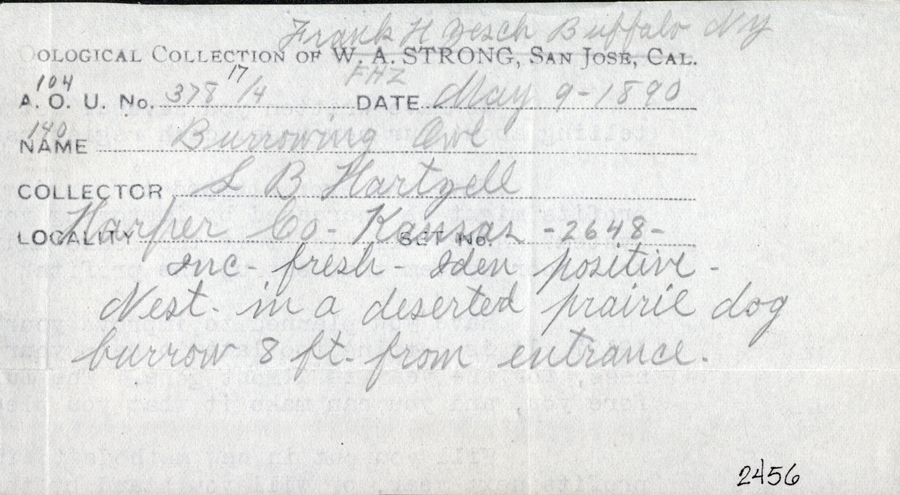 Frank H Zesch Buffalo NY
OOLOGICAL COLLECTION OF W. A. STRONG, SAN JOSE, CAL.
FHZ
104 17
A. O. U. No. 378 /4 DATE May 9-1890
140
NAME Burrowing Owl
COLLECTOR L B Hartzell
LOCALITY Harper Co- Kansas SET No. -2648-
Inc- fresh- Iden positive-
Nest- in a deserted prairie dog
burrow 8 ft. from entrance.
2456